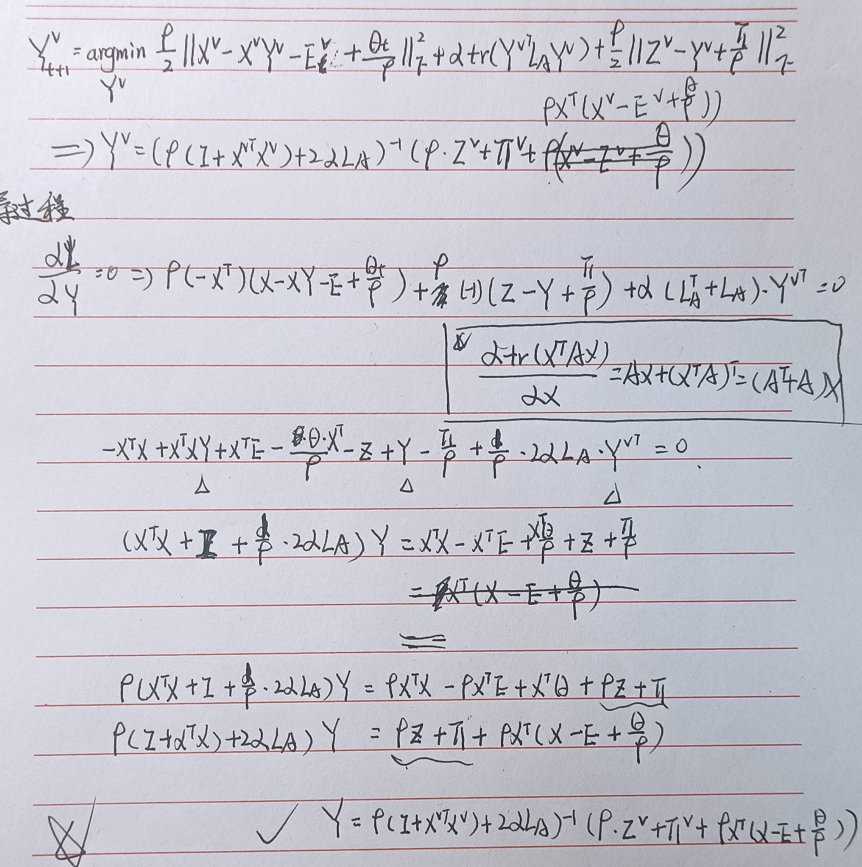 Y^v_{t+1} = argmin_{Y^v} ρ/2 ||X^v - X^vY^v - E^v_t + θ_t/ρ||^2_F + α tr(Y^{vT}L_AY^v) + ρ/2 ||Z^v - Y^v + π/ρ||^2_F
ρX^T(X^v - E^v + θ/ρ))
=> Y^v = (ρ(I + X^{vT}X^v) + 2αL_A)^{-1} (ρ·Z^v + π^v + ρ(X^v - Z^v + θ/ρ))
过程
∂L/∂Y = 0 => ρ(-X^T)(X - XY - E + θ_t/ρ) + ρ(-1)(Z - Y + π/ρ) + α(L_A^T + L_A)·Y^{vT} = 0
∂tr(X^TAX)/∂X = AX + (X^TA)^T = (A^T + A)X
-X^TX + X^TXY + X^TE - θ·X^T/ρ - Z + Y - π/ρ + 1/ρ · 2αL_A·Y^{vT} = 0.
(X^TX + I + 1/ρ · 2αL_A)Y = X^TX - X^TE + X^Tθ/ρ + Z + π/ρ
= X^T(X - E + θ/ρ)
=
ρ(X^TX + I + 1/ρ · 2αL_A)Y = ρX^TX - ρX^TE + X^Tθ + ρZ + π
ρ(I + X^TX) + 2αL_A) Y = ρZ + π + ρX^T(X - E + θ/ρ)
✓ Y = ρ(I + X^{vT}X^v) + 2αL_A)^{-1} (ρ·Z^v + π^v + ρX^T(X - E + θ/ρ))